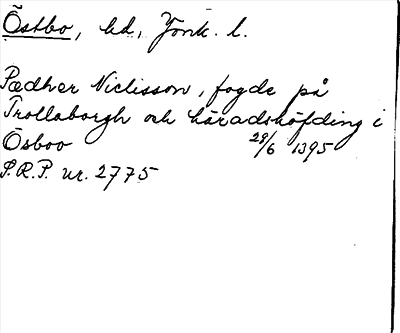 Östbo, hd, Jönk. l.
Pædher Niclisson, fogde på
Trollaborgh och häradshöfding i
Ösboo 28/6 1395
S.R.P. nr. 2775